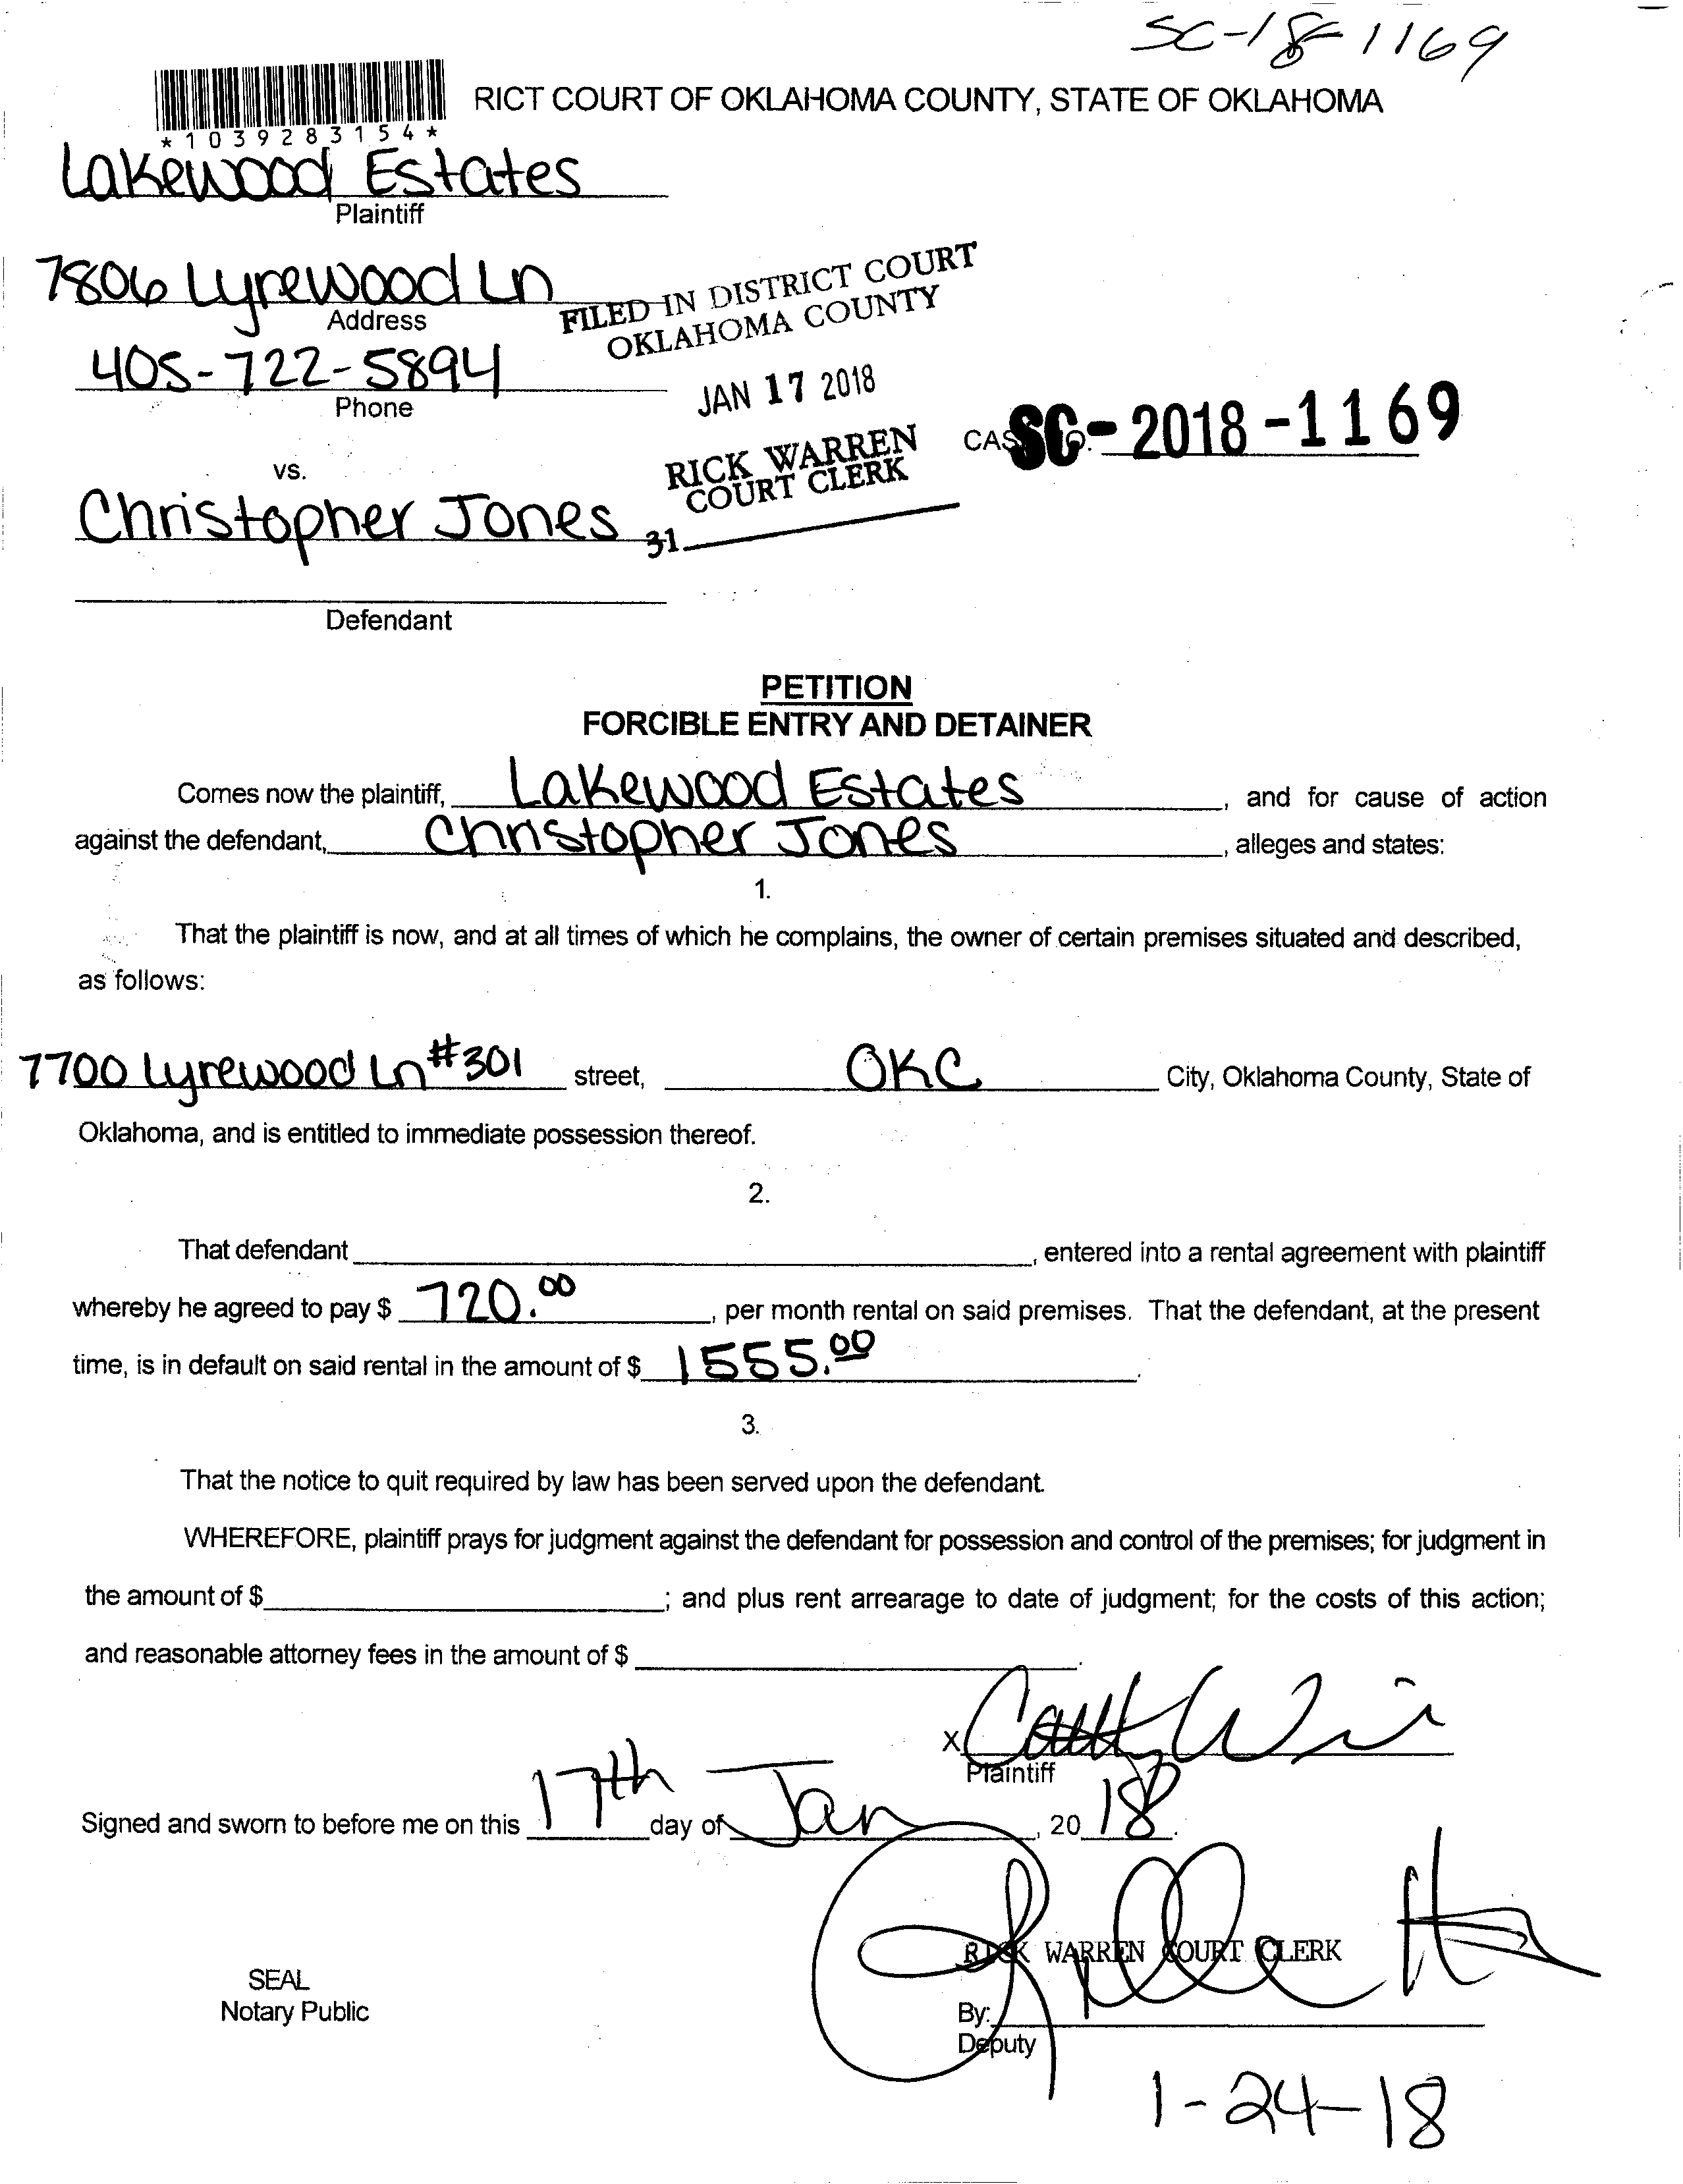 SC-18-1169
RICT COURT OF OKLAHOMA COUNTY, STATE OF OKLAHOMA
*1039283154*
Lakewood Estates
Plaintiff
7806 Lyrewood Ln
Address
FILED IN DISTRICT COURT
OKLAHOMA COUNTY
405-722-5894
Phone
JAN 17 2018
RICK WARREN
COURT CLERK
31
CAS SC-2018-1169
vs.
Christopher Jones
Defendant
PETITION
FORCIBLE ENTRY AND DETAINER
Comes now the plaintiff, Lakewood Estates, and for cause of action
against the defendant, Christopher Jones, alleges and states:
1.
That the plaintiff is now, and at all times of which he complains, the owner of certain premises situated and described,
as follows:
7700 Lyrewood Ln #301 street, OKC City, Oklahoma County, State of
Oklahoma, and is entitled to immediate possession thereof.
2.
That defendant, entered into a rental agreement with plaintiff
whereby he agreed to pay $ 720.00, per month rental on said premises. That the defendant, at the present
time, is in default on said rental in the amount of $ 1555.00.
3.
That the notice to quit required by law has been served upon the defendant.
WHEREFORE, plaintiff prays for judgment against the defendant for possession and control of the premises; for judgment in
the amount of $; and plus rent arrearage to date of judgment; for the costs of this action;
and reasonable attorney fees in the amount of $.
X
Plaintiff
Signed and sworn to before me on this 17th day of Jan, 2018.
RICK WARREN COURT CLERK
SEAL
Notary Public
By:
Deputy
1-24-18